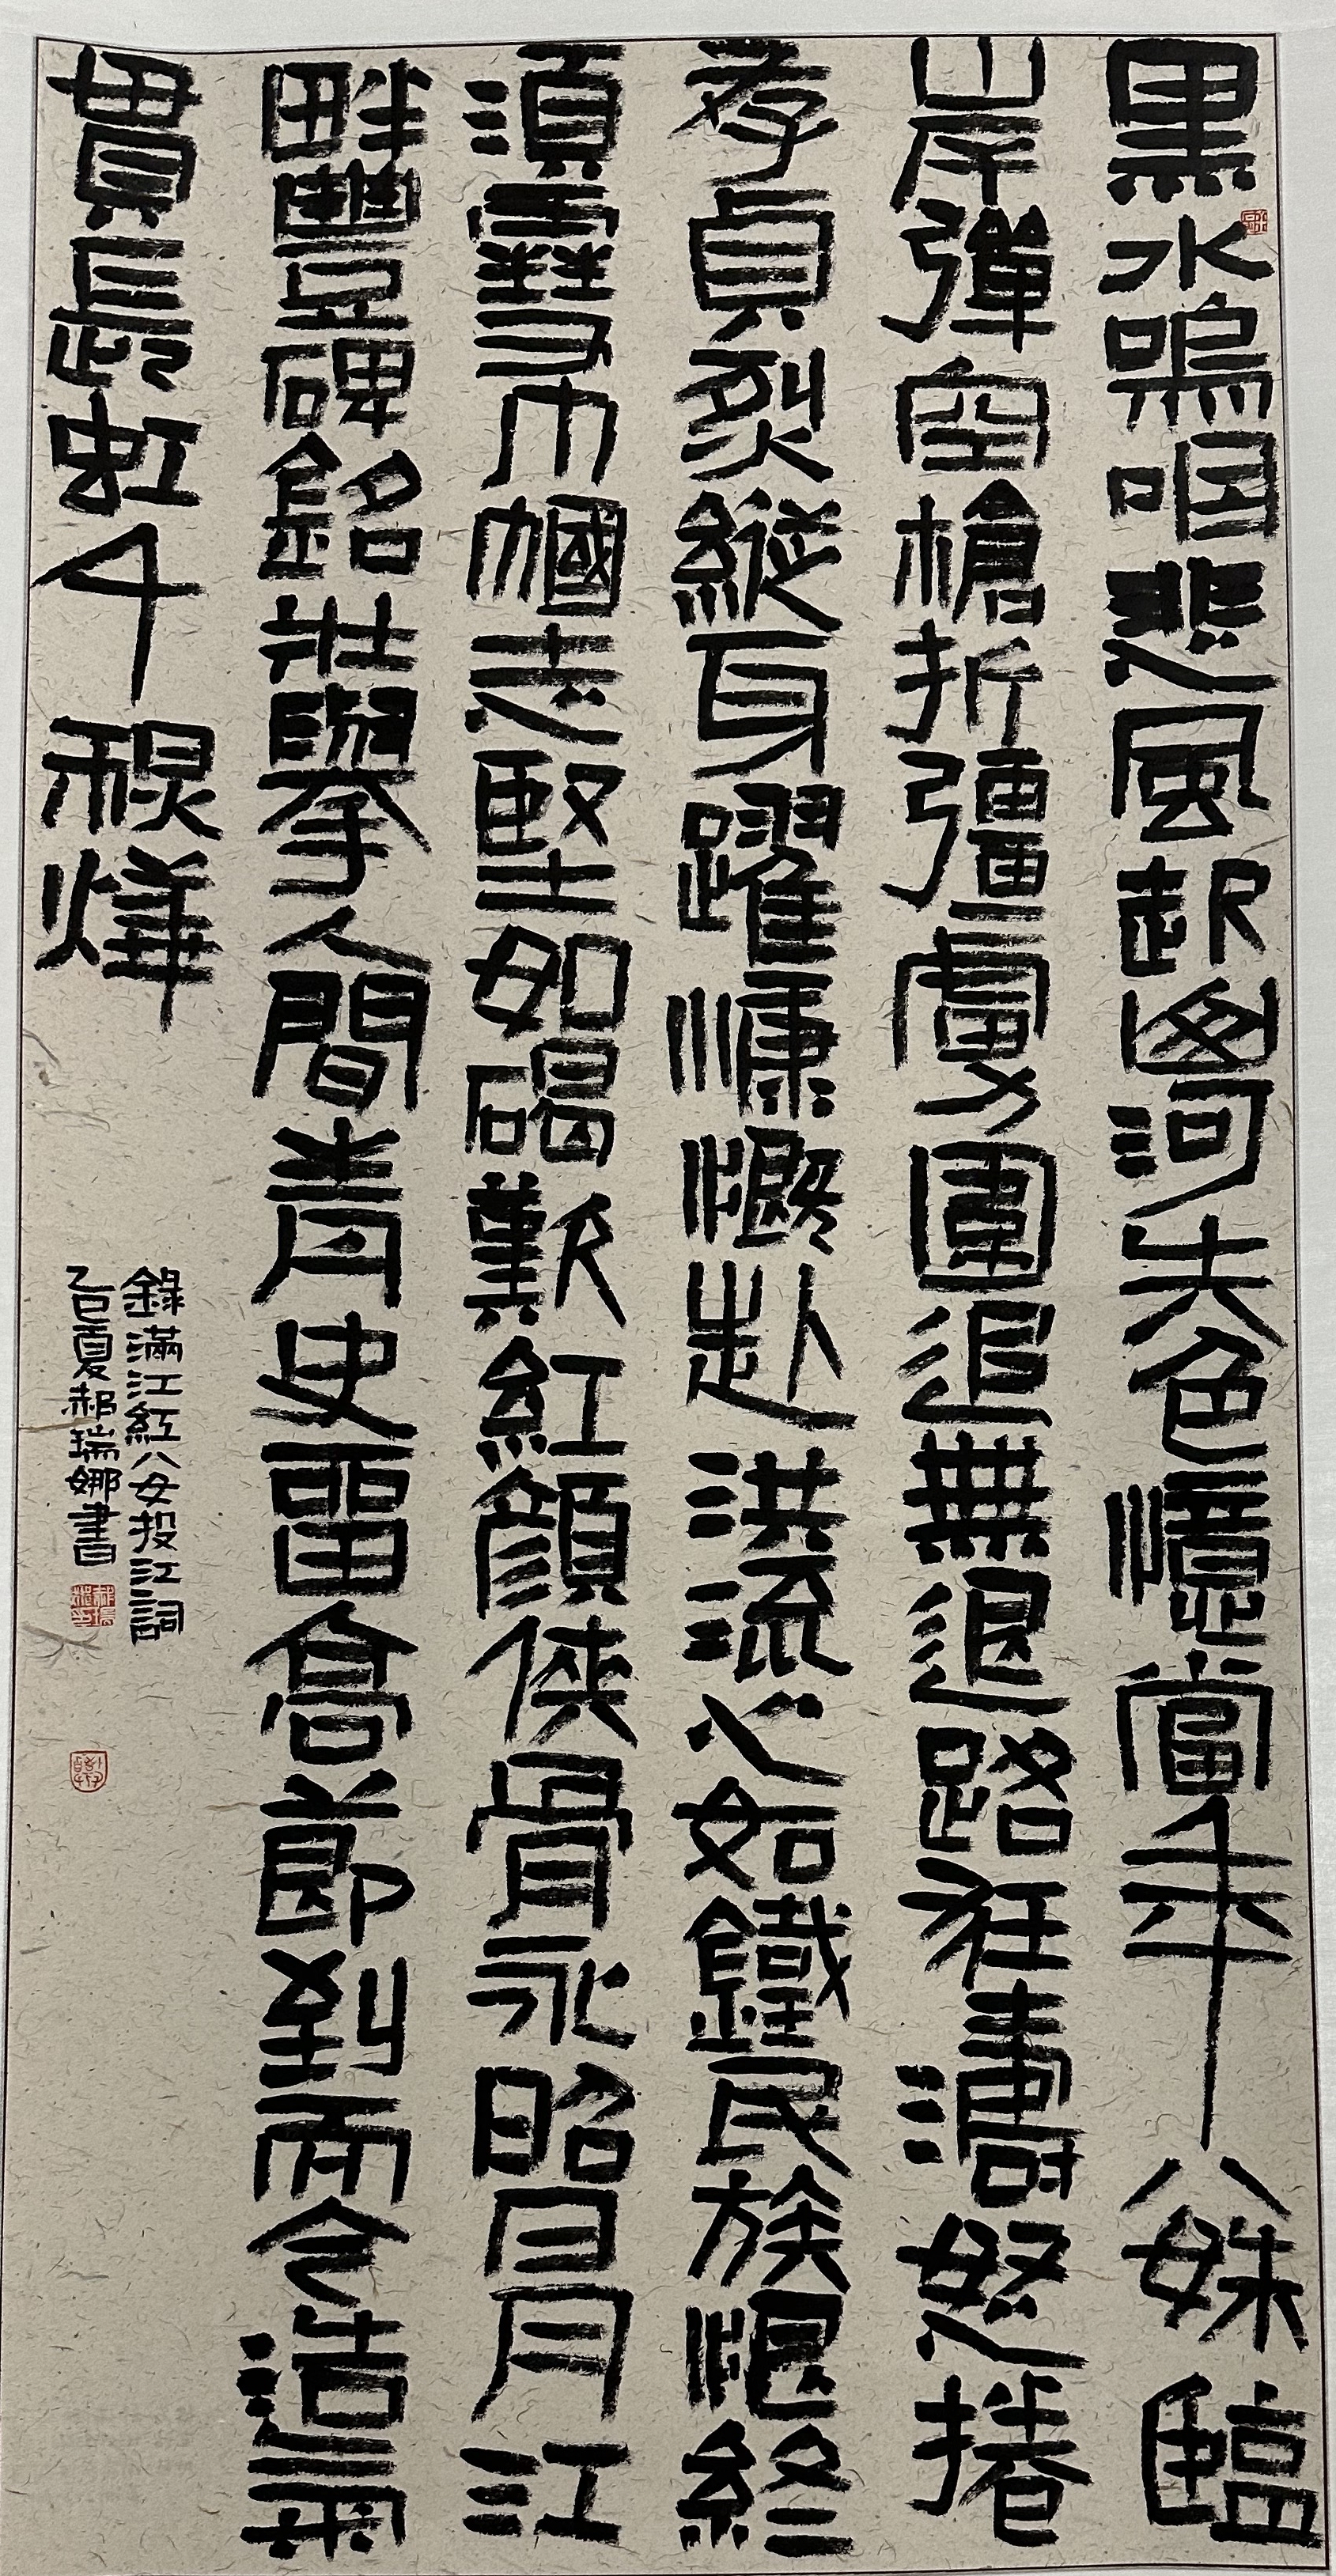 黑水嗚咽悲風起河失色憶當年八姝臨
岸彈空槍折彊虜圍追無退路狂濤怒捲
孝貞烈縱身躍慷慨赴洪流心如鐵民族恨終
須雪巾幗志堅如碣歎紅顏俠骨永昭日月江
畔豐碑銘壯舉人間青史留高節到而今浩氣
貫長虹千禩燁
錄滿江紅八女投江詞
乙巳夏郝瑞娜書